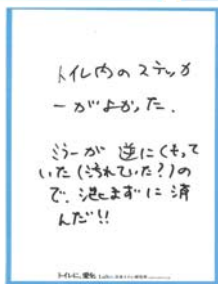 トイレ内のステッカ
ーがよかった.
ミラーが逆にくもって
いた(汚れていた?)の
で、まずに済
んだ!!
トイレに、愛を。